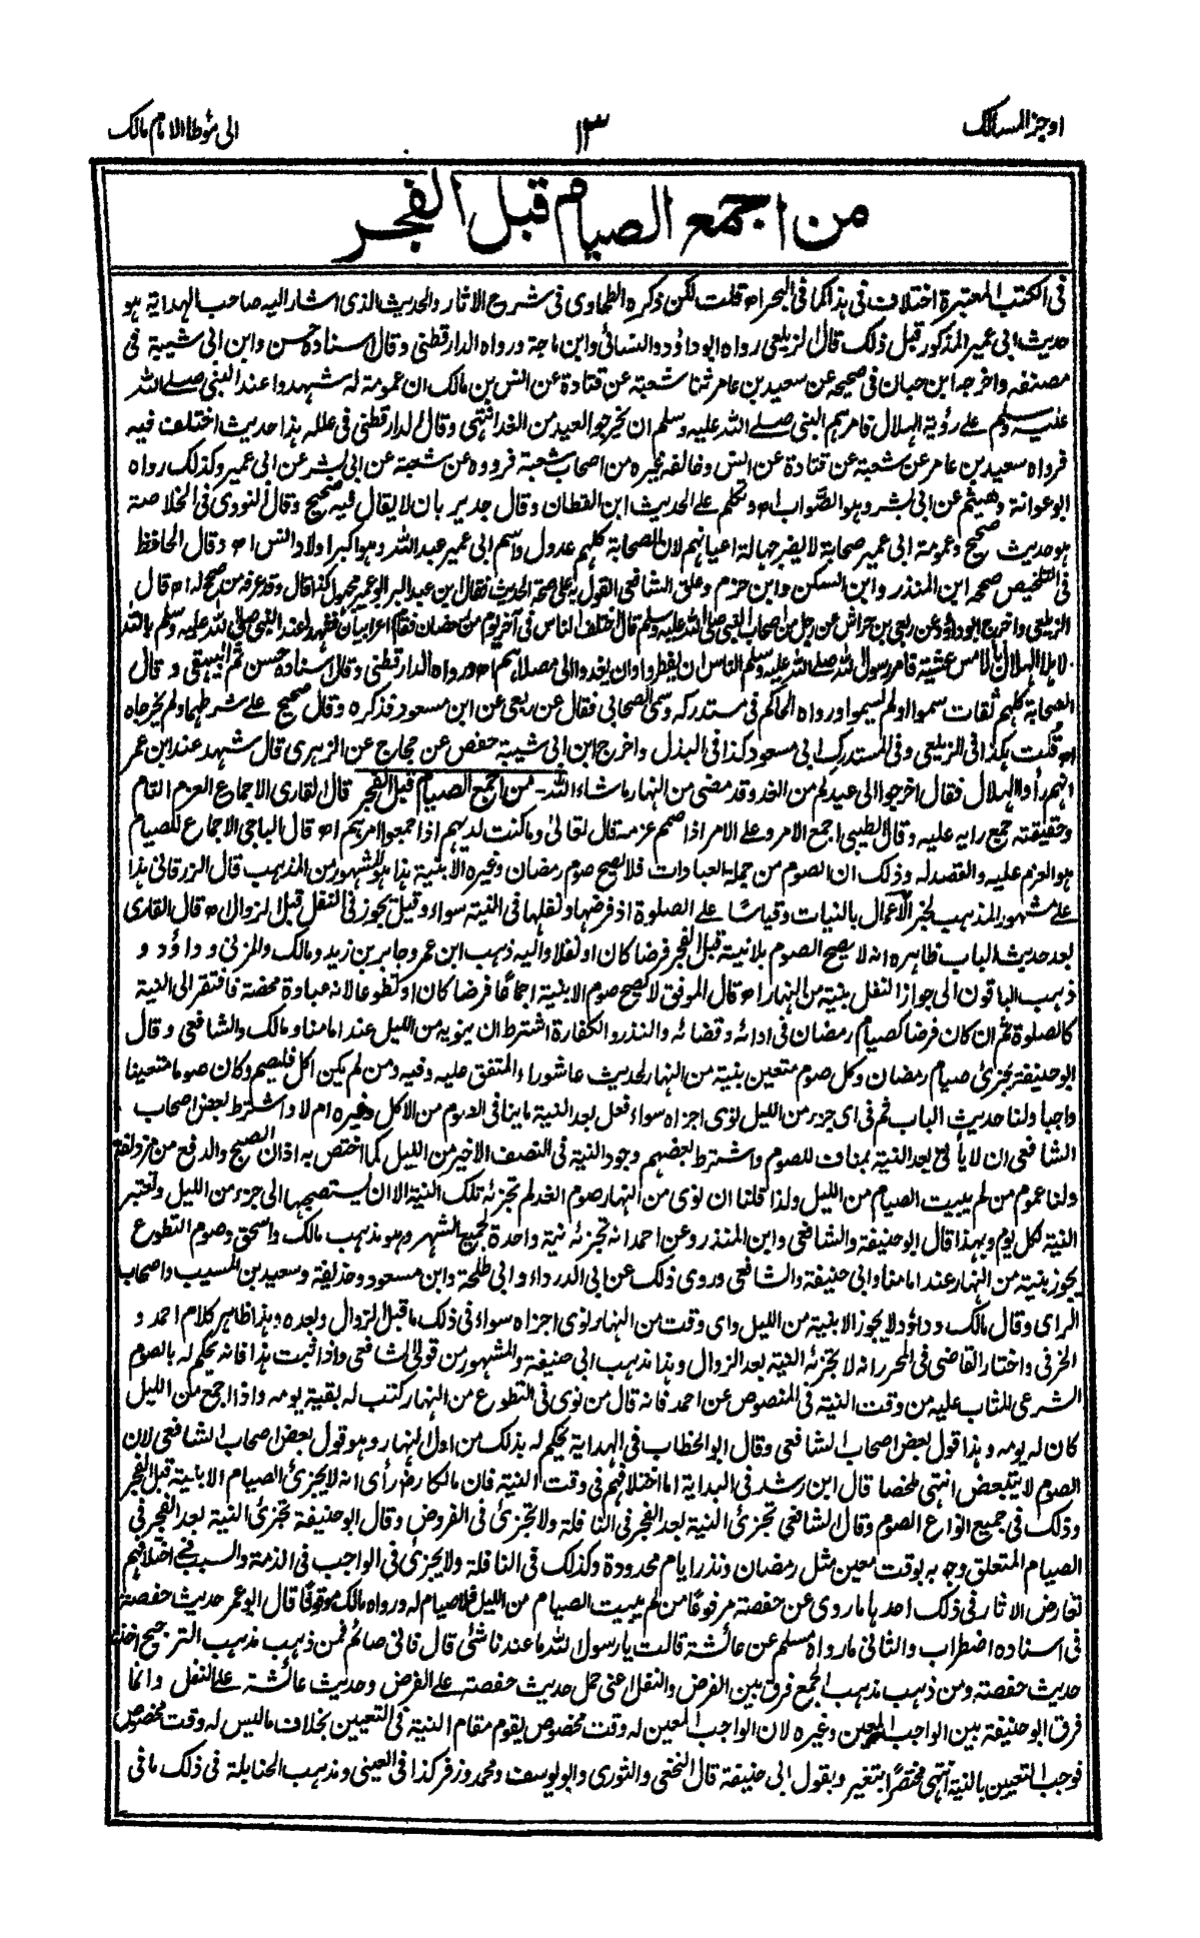 اوجز المسالک
١٣
الی مؤطا الامام مالک
من اجمع الصیام قبل الفجر
فی الکتب المعتبرة اختلافا فی هذا کما فی البحر اه قلت لکن ذکره الطحاوی فی شرح الاثار والحدیث الذی اشار الیه صاحب الهدایة هو
حدیث ابی عمیر المذکور قبل ذلک قال الزیلعی رواه ابو داؤد والنسائی وابن ماجة ورواه الدارقطنی وقال اسناده حسن وابن ابی شیبة فی
مصنفه واخرجه ابن حبان فی صحیحه عن سعید بن عامر ثنا شعبة عن قتادة عن انس بن مالک ان عمومة له شهدوا عند النبی صلے الله
علیه وسلم علے رؤیة الهلال فامرهم النبی صلے الله علیه وسلم ان یخرجوا لعید من الغد انتهی وقال الدارقطنی فی علله هذا حدیث اختلف فیه
فرواه سعید بن عامر عن شعبة عن قتادة عن انس وخالفه غیره من اصحاب شعبة فرووه عن شعبة عن ابی بشر عن ابی عمیر وکذلک رواه
ابو عوانة وهشیم عن ابی بشر وهو الصواب اه وتکلم علے الحدیث ابن القطان وقال جدیر بان لا یقال فیه صحیح وقال النووی فی الخلاصة
هو حدیث صحیح وعمومة ابی عمیر صحابة لا یضر جهالة اعیانهم لان الصحابة کلهم عدول واسم ابی عمیر عبد الله وهو اکبر اولاد انس اه وقال الحافظ
فی التلخیص صححه ابن المنذر وابن السکن وابن حزم وعلق الشافعی القول به علی صحة الحدیث فقال ابن عبد البر ابو عمیر مجهول کذا قال وقد عرفه من صحح له اه قال
الزیلعی واخرج ابو داؤد عن ربعی بن حراش عن رجل من اصحاب النبی صلی الله علیه وسلم قال اختلف الناس فی آخر یوم من رمضان فقدم اعرابیان فشهدا عند النبی صلی الله علیه وسلم بالله
لاهلا الهلال بالامس عشیة فامر رسول الله صلے الله علیه وسلم الناس ان یفطروا وان یغدوا الی مصلاهم اه ورواه الدارقطنی وقال اسناده حسن ثم البیهقی وقال
الصحابة کلهم ثقات سموا او لم یسموا ورواه الحاکم فی مستدرکه وسمی الصحابی فقال عن ربعی عن ابن مسعود فذکره وقال صحیح علے شرطهما ولم یخرجاه
اه قلت هکذا فی الزیلعی وفی المستدرک ابی مسعود کذا فی البذل واخرج ابن ابی شیبة حفص عن حجاج عن الزهری قال شهد عند ابن عمر
انهم رأوا الهلال فقال اخرجوا الی عیدکم من الغد وقد مضی من النهار ما شاء الله - من اجمع الصیام قبل الفجر قال القاری الاجماع العزم التام
وحقیقته جمع رایه علیه وقال الطیبی اجمع الامر وعلی الامر اذا صمم عزمه قال تعالی وما کنت لدیهم اذ اجمعوا امرهم اه قال الباجی الاجماع للصیام
هو العزم علیه والقصد له وذلک ان الصوم من جملة العبادات فلا یصح صوم رمضان وغیره الا بنیة هذا هو المشهور من المذهب قال الزرقانی هذا
علے مشهور المذهب لخبر الاعمال بالنیات وقیاسًا علے الصلوة اذ فرضها ونفلها فی النیة سواء وقیل یجوز فی النفل قبل الزوال اه قال القاری
بعد حدیث الباب ظاهره انه لا یصح الصوم بلا نیة قبل الفجر فرضا کان او نفلا والیه ذهب ابن عمر وجابر بن زید ومالک والمزنی وداؤد و
ذهب الباقون الی جواز النفل بنیة من النهار اه قال الموفق لا یصح صوم الا بنیة اجماعًا فرضا کان او تطوعا لانه عبادة محضة فافتقر الی النیة
کالصلوة ثم ان کان فرضا کصیام رمضان فی ادائه وقضائه والنذر والکفارة اشترط ان ینویه من اللیل عند امامنا ومالک والشافعی وقال
ابو حنیفة یجزئ صیام رمضان وکل صوم متعین بنیة من النهار لحدیث عاشوراء المتفق علیه وفیه ومن لم یکن اکل فلیصم وکان صوما متعینا
واجبا ولنا حدیث الباب ثم فی ای جزء من اللیل نوی اجزاه سواء فعل بعد النیة ما ینافی الصوم من الاکل وغیره ام لا واشترط بعض اصحاب
الشافعی ان لا یأتی بعد النیة بمناف للصوم واشترط بعضهم وجود النیة فی النصف الاخیر من اللیل کما اختص به اذان الصبح والدفع من مزدلفة
ولنا عموم من لم یبیت الصیام من اللیل ولذا قلنا ان نوی من النهار صوم الغد لم تجزئه تلک النیة الا ان یستصحبها الی جزء من اللیل وتعتبر
النیة لکل یوم وبهذا قال ابو حنیفة والشافعی وابن المنذر وعن احمد انه تجزئه نیة واحدة لجمیع الشهر وهو مذهب مالک واسحق وصوم التطوع
یجوز بنیة من النهار عند امامنا وابی حنیفة والشافعی وروی ذلک عن ابی الدرداء وابی طلحة وابن مسعود وحذیفة وسعید بن المسیب واصحاب
الرای وقال مالک وداؤد لا یجوز الا بنیة من اللیل وای وقت من النهار نوی اجزاه سواء فی ذلک ما قبل الزوال وبعده وهذا ظاهر کلام احمد و
الخرقی واختار القاضی فی المحرر انه لا تجزئه النیة بعد الزوال وهذا مذهب ابی حنیفة والمشهور من قولی الشافعی واذا ثبت هذا فانه یحکم له بالصوم
الشرعی المثاب علیه من وقت النیة فی المنصوص عن احمد فانه قال من نوی فی التطوع من النهار کتب له بقیة یومه واذا اجمع من اللیل
کان له یومه وهذا قول بعض اصحاب الشافعی وقال ابو الخطاب فی الهدایة یحکم له بذلک من اول النهار وهو قول بعض اصحاب الشافعی لان
الصوم لا یتبعض انتهی ملخصا قال ابن رشد فی البدایة اما اختلافهم فی وقت النیة فان مالکا رضـ رأی انه لا یجزئ الصیام الا بنیة قبل الفجر
وذلک فی جمیع انواع الصوم وقال الشافعی تجزئ النیة بعد الفجر فی النافلة ولا تجزئ فی الفروض وقال ابو حنیفة تجزئ النیة بعد الفجر فی
الصیام المتعلق وجوبه بوقت معین مثل رمضان ونذر ایام محدودة وکذلک فی النافلة ولا یجزئ فی الواجب فی الذمة والسبب فی اختلافهم
تعارض الاثار فی ذلک احدها ما روی عن حفصة مرفوعًا من لم یبیت الصیام من اللیل فلا صیام له ورواه مالک موقوفًا قال ابو عمر حدیث حفصة
فی اسناده اضطراب والثانی ما رواه مسلم عن عائشة قالت یا رسول الله ما عندنا شئ قال فانی صائم فمن ذهب مذهب الترجیح اخذ
حدیث حفصة ومن ذهب مذهب الجمع فرق بین الفرض والنفل اعنی حمل حدیث حفصة علے الفرض وحدیث عائشة علے النفل وانما
فرق ابو حنیفة بین الواجب المعین وغیره لان الواجب المعین له وقت مخصوص یقوم مقام النیة فی التعیین بخلاف ما لیس له وقت مخصوص
فوجب التعیین بالنیة انتهی مختصرًا بتغیر وبقول ابی حنیفة قال النخعی والثوری وابو یوسف ومحمد وزفر کذا فی العینی ومذهب الحنابلة فی ذلک ما فی